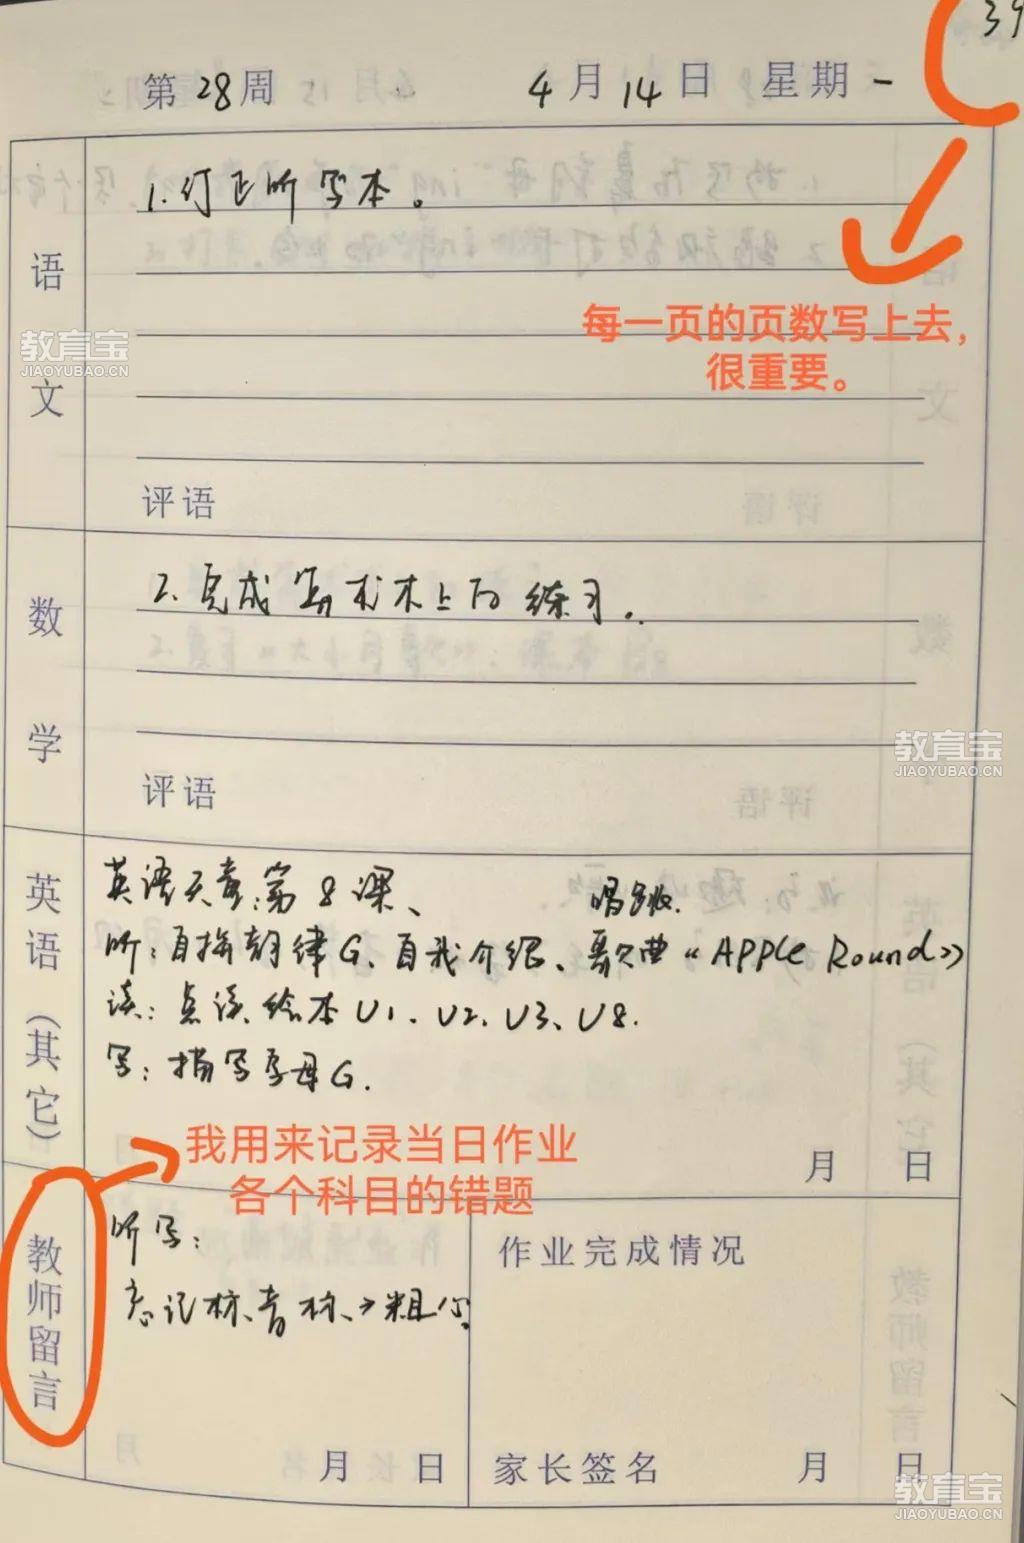 39
第28周 4月14日 星期一
语文
1.订正听写本。
每一页的页数写上去,
很重要。
教育宝
JIAOYUBAO.CN
评语
数学
2.完成写术本上的练习。
教育宝
JIAOYUBAO.CN
评语
英语(其它)
英语天章:第8课、
唱跳.
听:自拼韵律G、自我介绍、歌曲《APPLE Round》
读:点读绘本U1、U2、U3、U8.
写:描写字母G.
我用来记录当日作业
各个科目的错题
月 日
教师留言
听写:
忘记标音标→粗心
作业完成情况
月 日
家长签名 月 日
教育宝
JIAOYUBAO.CN